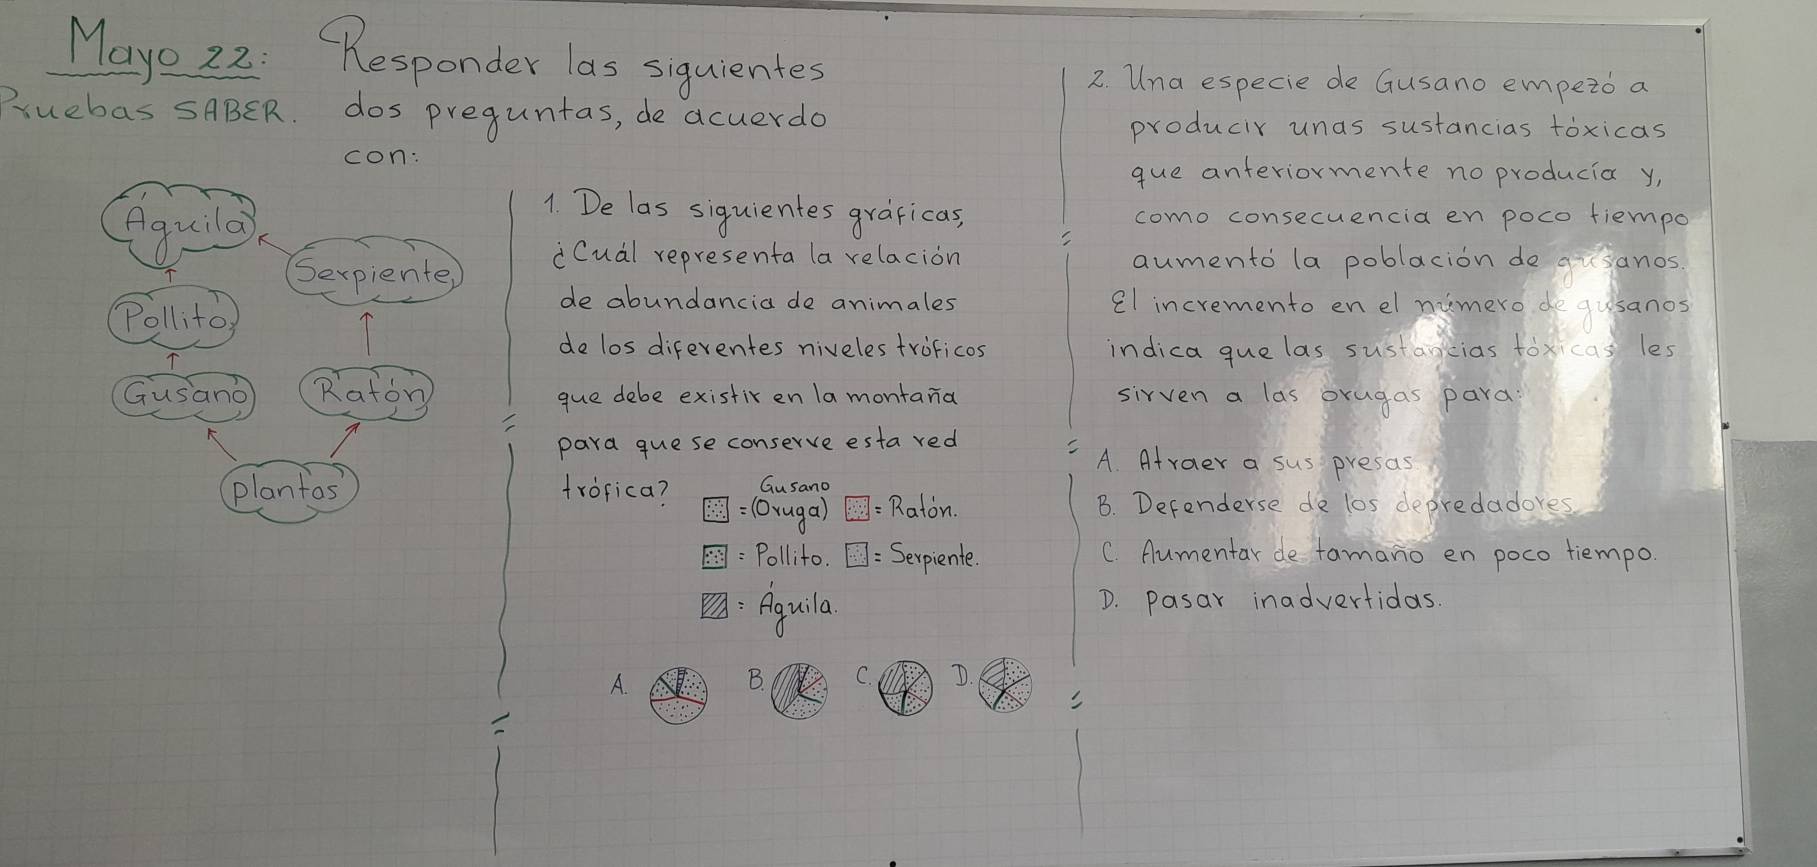 Mayo 22:
Pruebas SABER.
Responder las siguientes
dos preguntas, de acuerdo
con:
Águila
Serpiente
Pollito
Gusano
Ratón
plantas
1. De las siguientes gráficas,
¿Cuál representa la relación
de abundancia de animales
de los diferentes niveles tróficos
que debe existir en la montaña
para que se conserve esta red
trófica?
Gusano
= (Oruga) = Ratón.
= Pollito. = Serpiente.
= Águila.
A. B. C. D.
2. Una especie de Gusano empezó a
producir unas sustancias tóxicas
que anteriormente no producía y,
como consecuencia en poco tiempo
aumentó la población de gusanos.
El incremento en el número de gusanos
indica que las sustancias tóxicas les
sirven a las orugas para:
A. Atraer a sus presas.
B. Defenderse de los depredadores
C. Aumentar de tamaño en poco tiempo.
D. pasar inadvertidas.